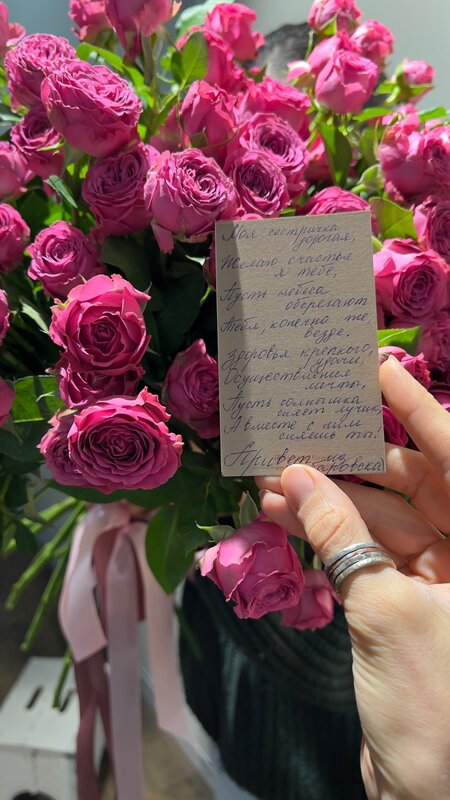 Моя сестричка
дорогая,
Желаю счастья
я тебе,
Пусть небеса
оберегают
Тебя, конечно же
везде.
Здоровья крепкого,
удачи,
Осуществления
мечты,
Пусть солнышка
сияет лучик,
А вместе с ним
сияешь ты.
Привет из